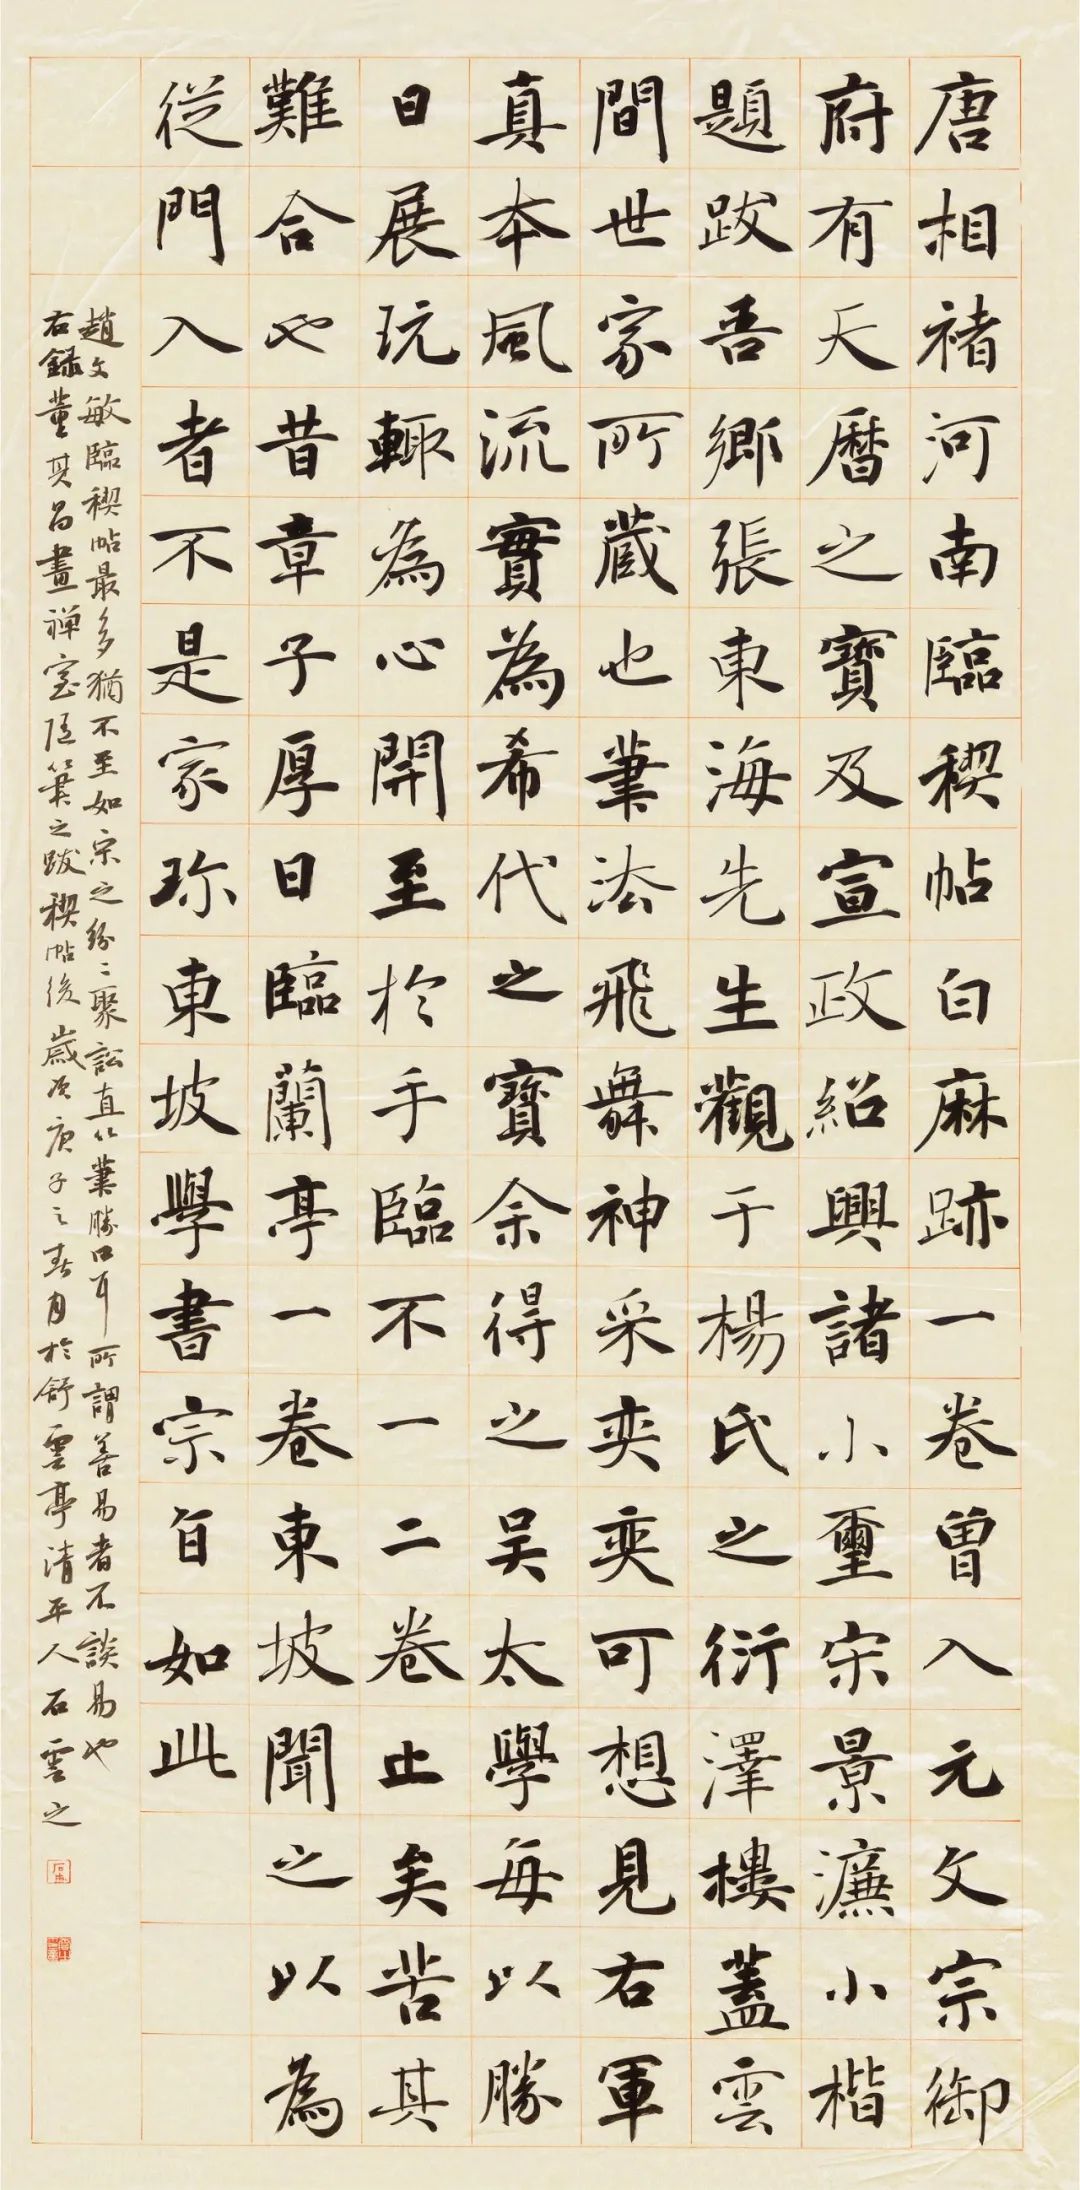 唐相褚河南臨稧帖白麻跡一卷曾入元文宗御
府有天曆之寶及宣政紹興諸小璽宋景濂小楷
題跋吾鄉張東海先生觀于楊氏之衍澤樓蓋雲
間世家所蔵也筆法飛舞神采奕奕可想見右軍
真本風流實為希代之寶余得之吴太學每以勝
日展玩輙為心開至於手臨不一二卷止矣苦其
難合也昔章子厚日臨蘭亭一卷東坡聞之以為
従門入者不是家珎東坡學書宗旨如此
趙文敏臨稧帖最多猶不至如宋之紛〻聚訟直以筆勝口耳所謂善易者不談易也
右録董其昌畫禅室随筆之跋稧帖後歲次庚子之春月於舒雲亭清平人石雲之